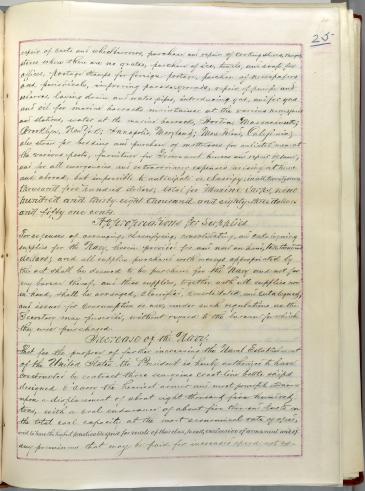 25
repair of carts and wheelbarrows, purchase and repair of cooking stoves, ranges,
stoves where there are no grates, purchase of ice, towels, and soap for
offices, postage stamps for foreign postage, purchase of newspapers
and periodicals, improving parade grounds, repair of pumps and
wharves, laying drain and water pipes, introducing gas, and for gas
and oil for marine barracks maintained at the various navy yards
and stations, water at the marine barracks, Boston, Massachusetts;
Brooklyn, New York; Annapolis, Maryland; Mare Island, California;
also straw for bedding and purchase of mattresses for enlisted men at
the various posts, furniture for Government houses and repair of same,
and for all emergencies and extraordinary expenses arising at home
and abroad, but impossible to anticipate or classify,
thousand five hundred dollars, total for Marine Corps, nine
hundred and thirty eight thousand and eighty dollars
and fifty one cents.
Appropriations for Supplies
For expenses of arranging, classifying, consolidating, and cataloguing
supplies for the Navy, herein provided for and now on hand, thousand
dollars; and all supplies purchased with moneys appropriated by
this act shall be deemed to be purchased for the Navy and not for
any bureau thereof, and these supplies, together with all supplies now
on hand, shall be arranged, classified, consolidated, and catalogued,
and issued for consumption or use, under such regulations as the
Secretary may prescribe, without regard to the bureau for which
they were purchased.
Increase of the Navy.
That for the purpose of further increasing the Naval Establishment
of the United States, the President is hereby authorized to have
constructed by contract three sea-going coast-line battle ships
designed to carry the heaviest armor and most powerful ordnance
upon a displacement of about eight thousand five hundred
tons, with a coal endurance of about five thousand knots on
the total coal capacity at the most economical rate of speed,
and to have the highest practicable speed for vessels of their class, to cost, exclusive of armament and of
any premiums that may be paid for increased speed, not ex-